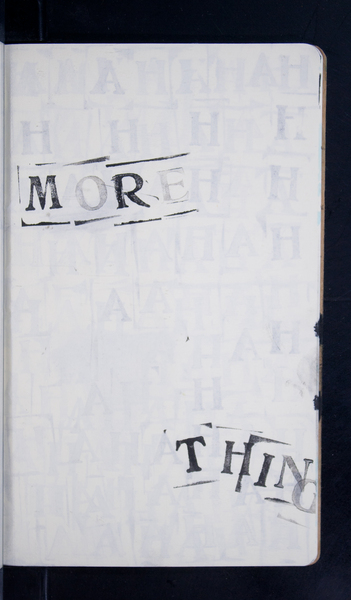 MORE
THING